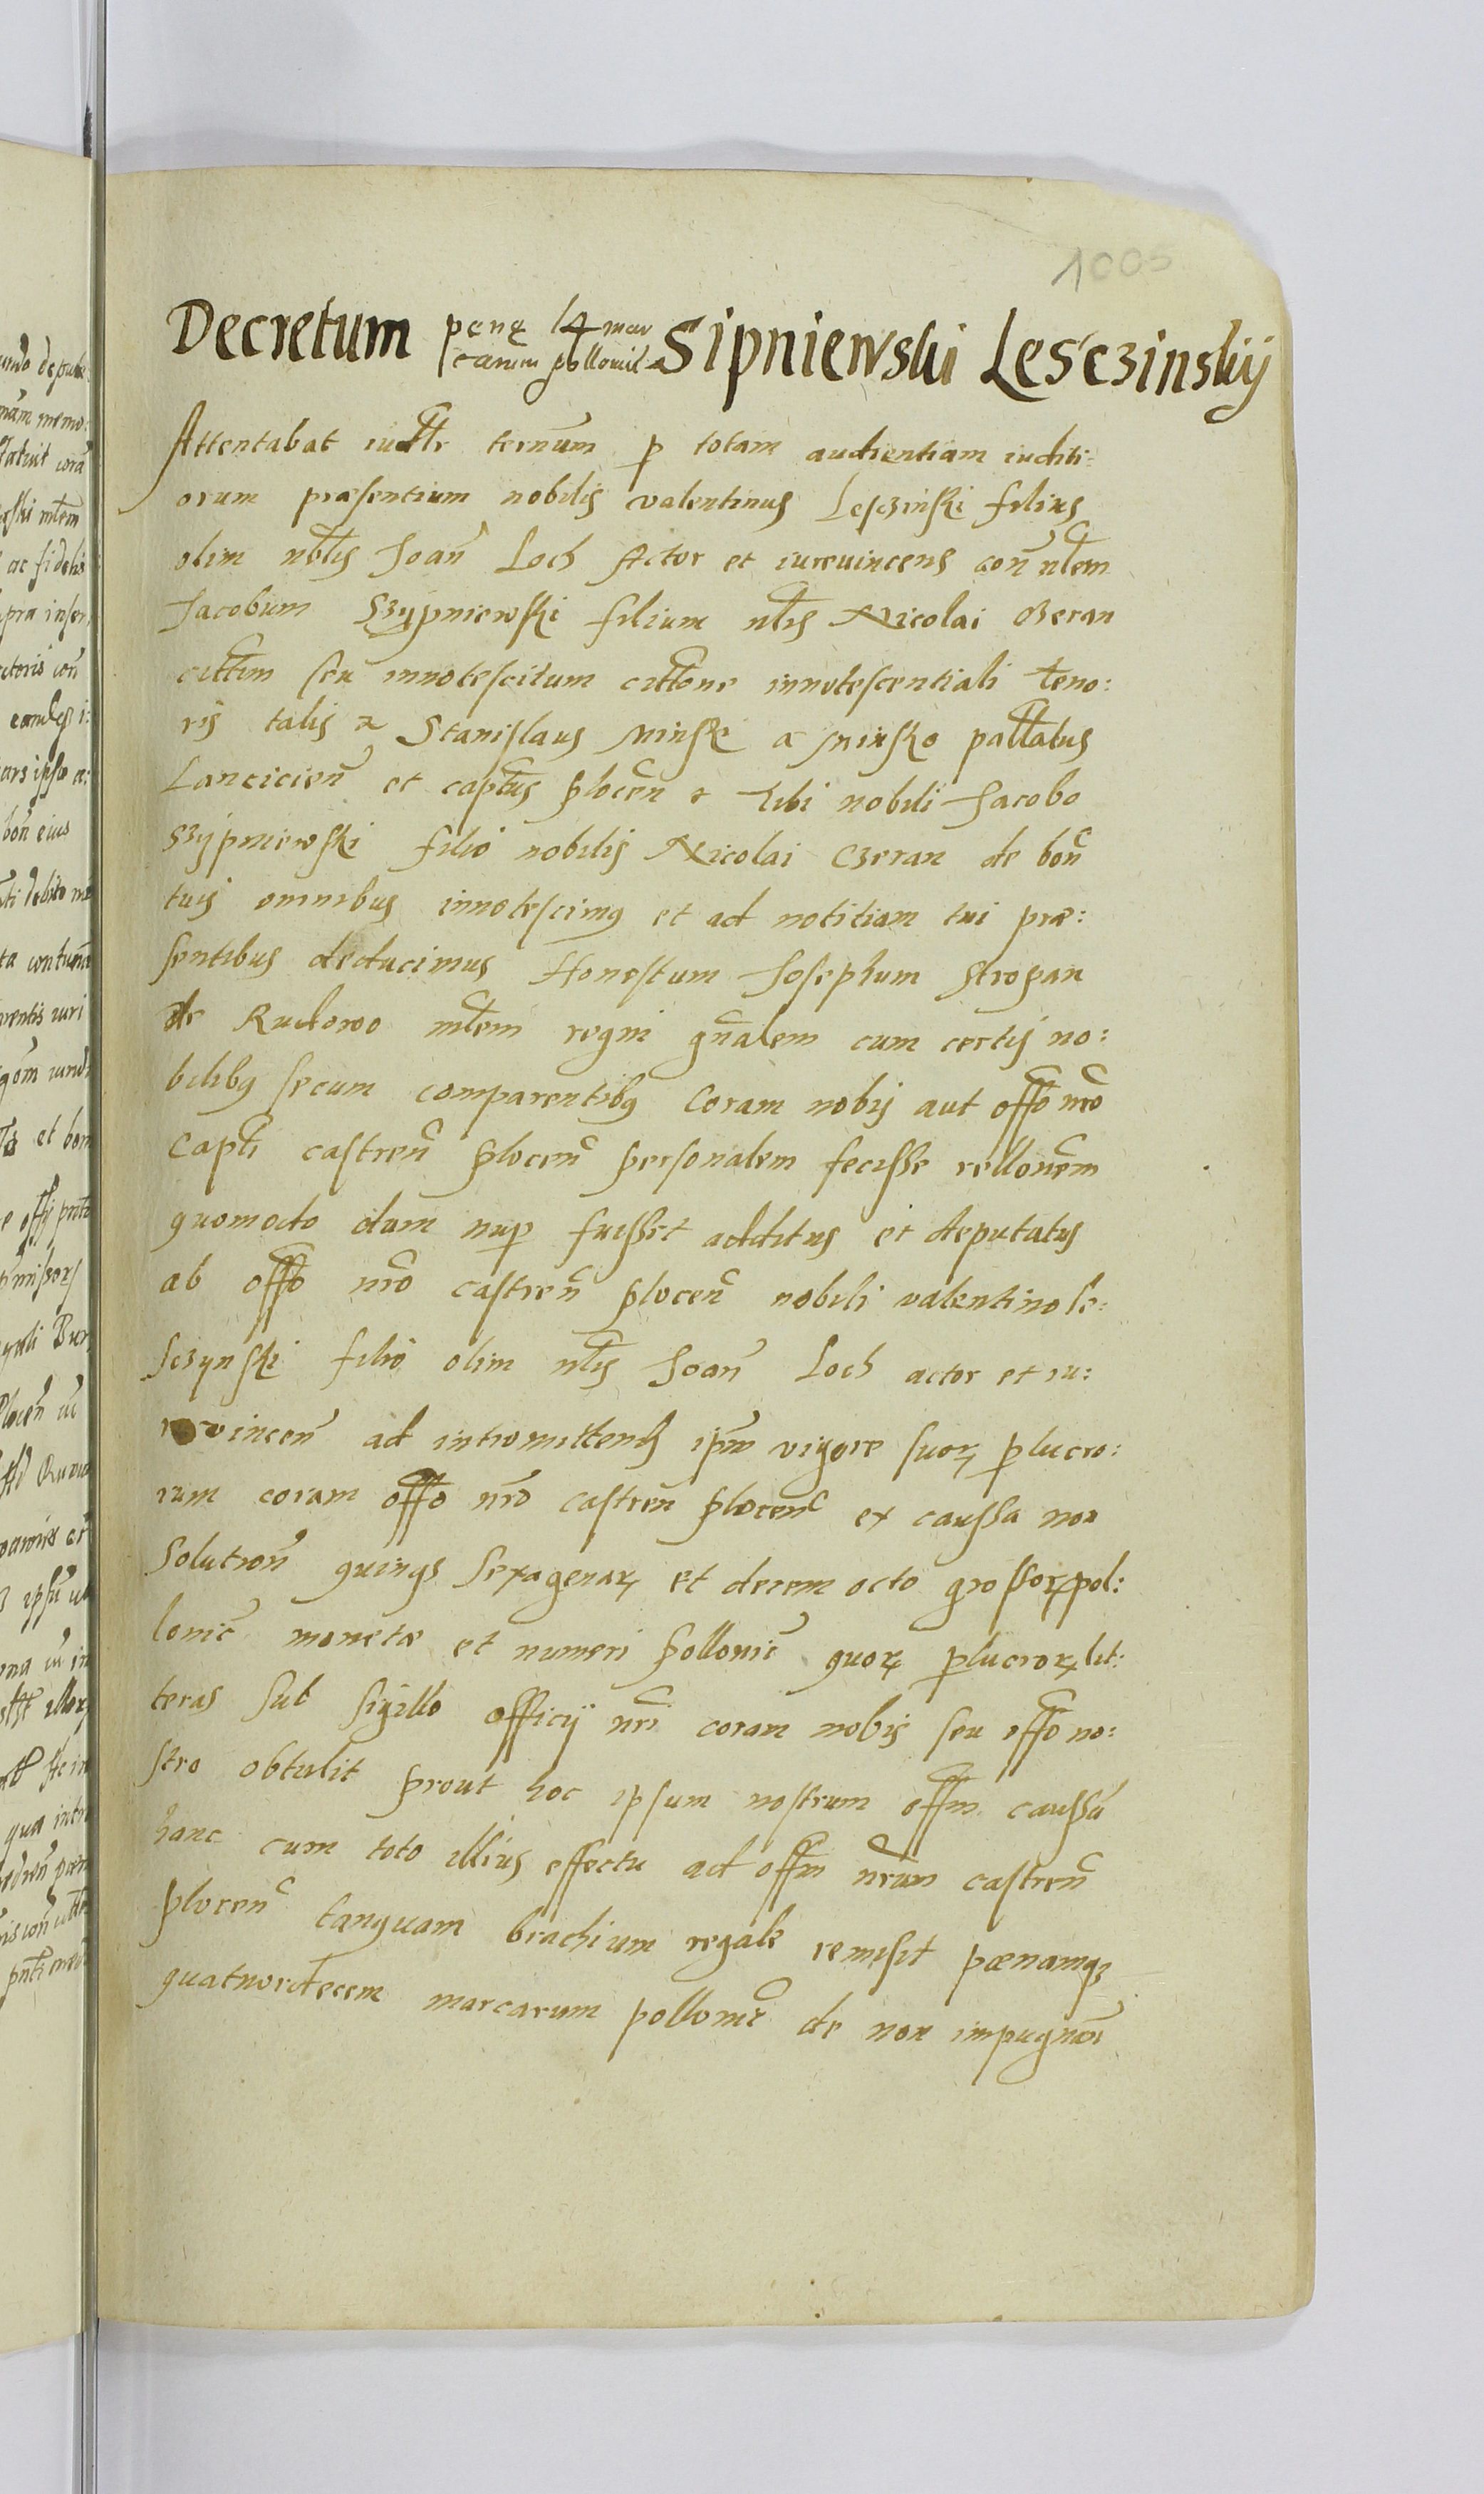 1005
Decretum penę 14 mar Sipniewski Lesczinskij
carum pollonica
Attentabat iudltr ternum p totam audientiam iuditi:
orum præsentium nobilis valentinus Lesczinski filius
olim nblis Joañ Loch Actor et iurevincens coñ nlem
Jacobum Szypniewski filium nlis Nicolai Czeran
cittum seu innotescitum cittone innotescentiali teno:
ris talis Stanislaus Minski a Minsko pallatus
Lancicieñ et captus plocen Tibi nobili Jacobo
Szypniewski filio nobilis Nicolai Czeran de boñ
tuis omnibus innotescimus et ad notitiam tui præ:
sentibus deducimus Honestum Josephum Stropan
de Rudowo mlem regni gñalem cum certis no:
bilibus secum comparentibus Coram nobis aut offo nro
Capli castreñ ploceñ personalem fecisse rellonem
quomodo dum nup fuisset additus et deputatus
ab offo nro castreñ ploceñ nobili valentino le:
sczynski filio olim nlis Joañ Loch actor et iu:
revinceñ ad intromittend ipm vigore suor plucro:
rum coram offo nro castren ploceñ ex caussa non
Solutioñ quinqs sexagenar et decem octo grossor pol:
lonic monetæ et numeri pollonic quor plucror lit:
teras sub sigillo officij nri coram nobis seu offo no:
stro obtulit prout hoc ipsum nostrum offm caussã
hanc cum toto illius effectu ad offm nrum castreñ
ploceñ tanquam brachium regale remisit pænamq
quatuordecem marcarum pollonic de non impugnãi